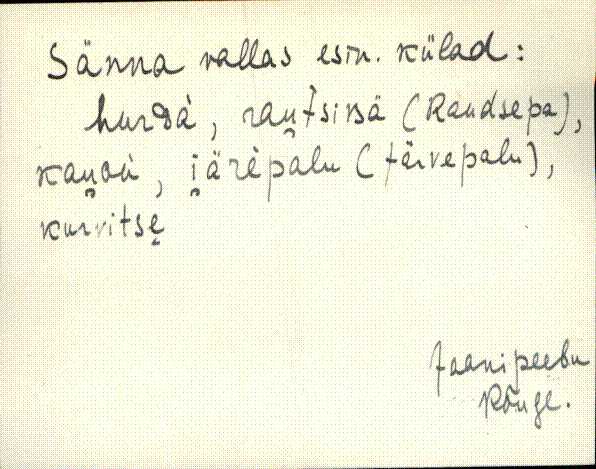 Sänna vallas esin. külad:
hurda, rau̯tsiʙä (Raudsepa),
kau̯ɢu, i̯ärèpalu (Järvepalu),
kurvitse̬
Jaanipeebu
Rõuge.